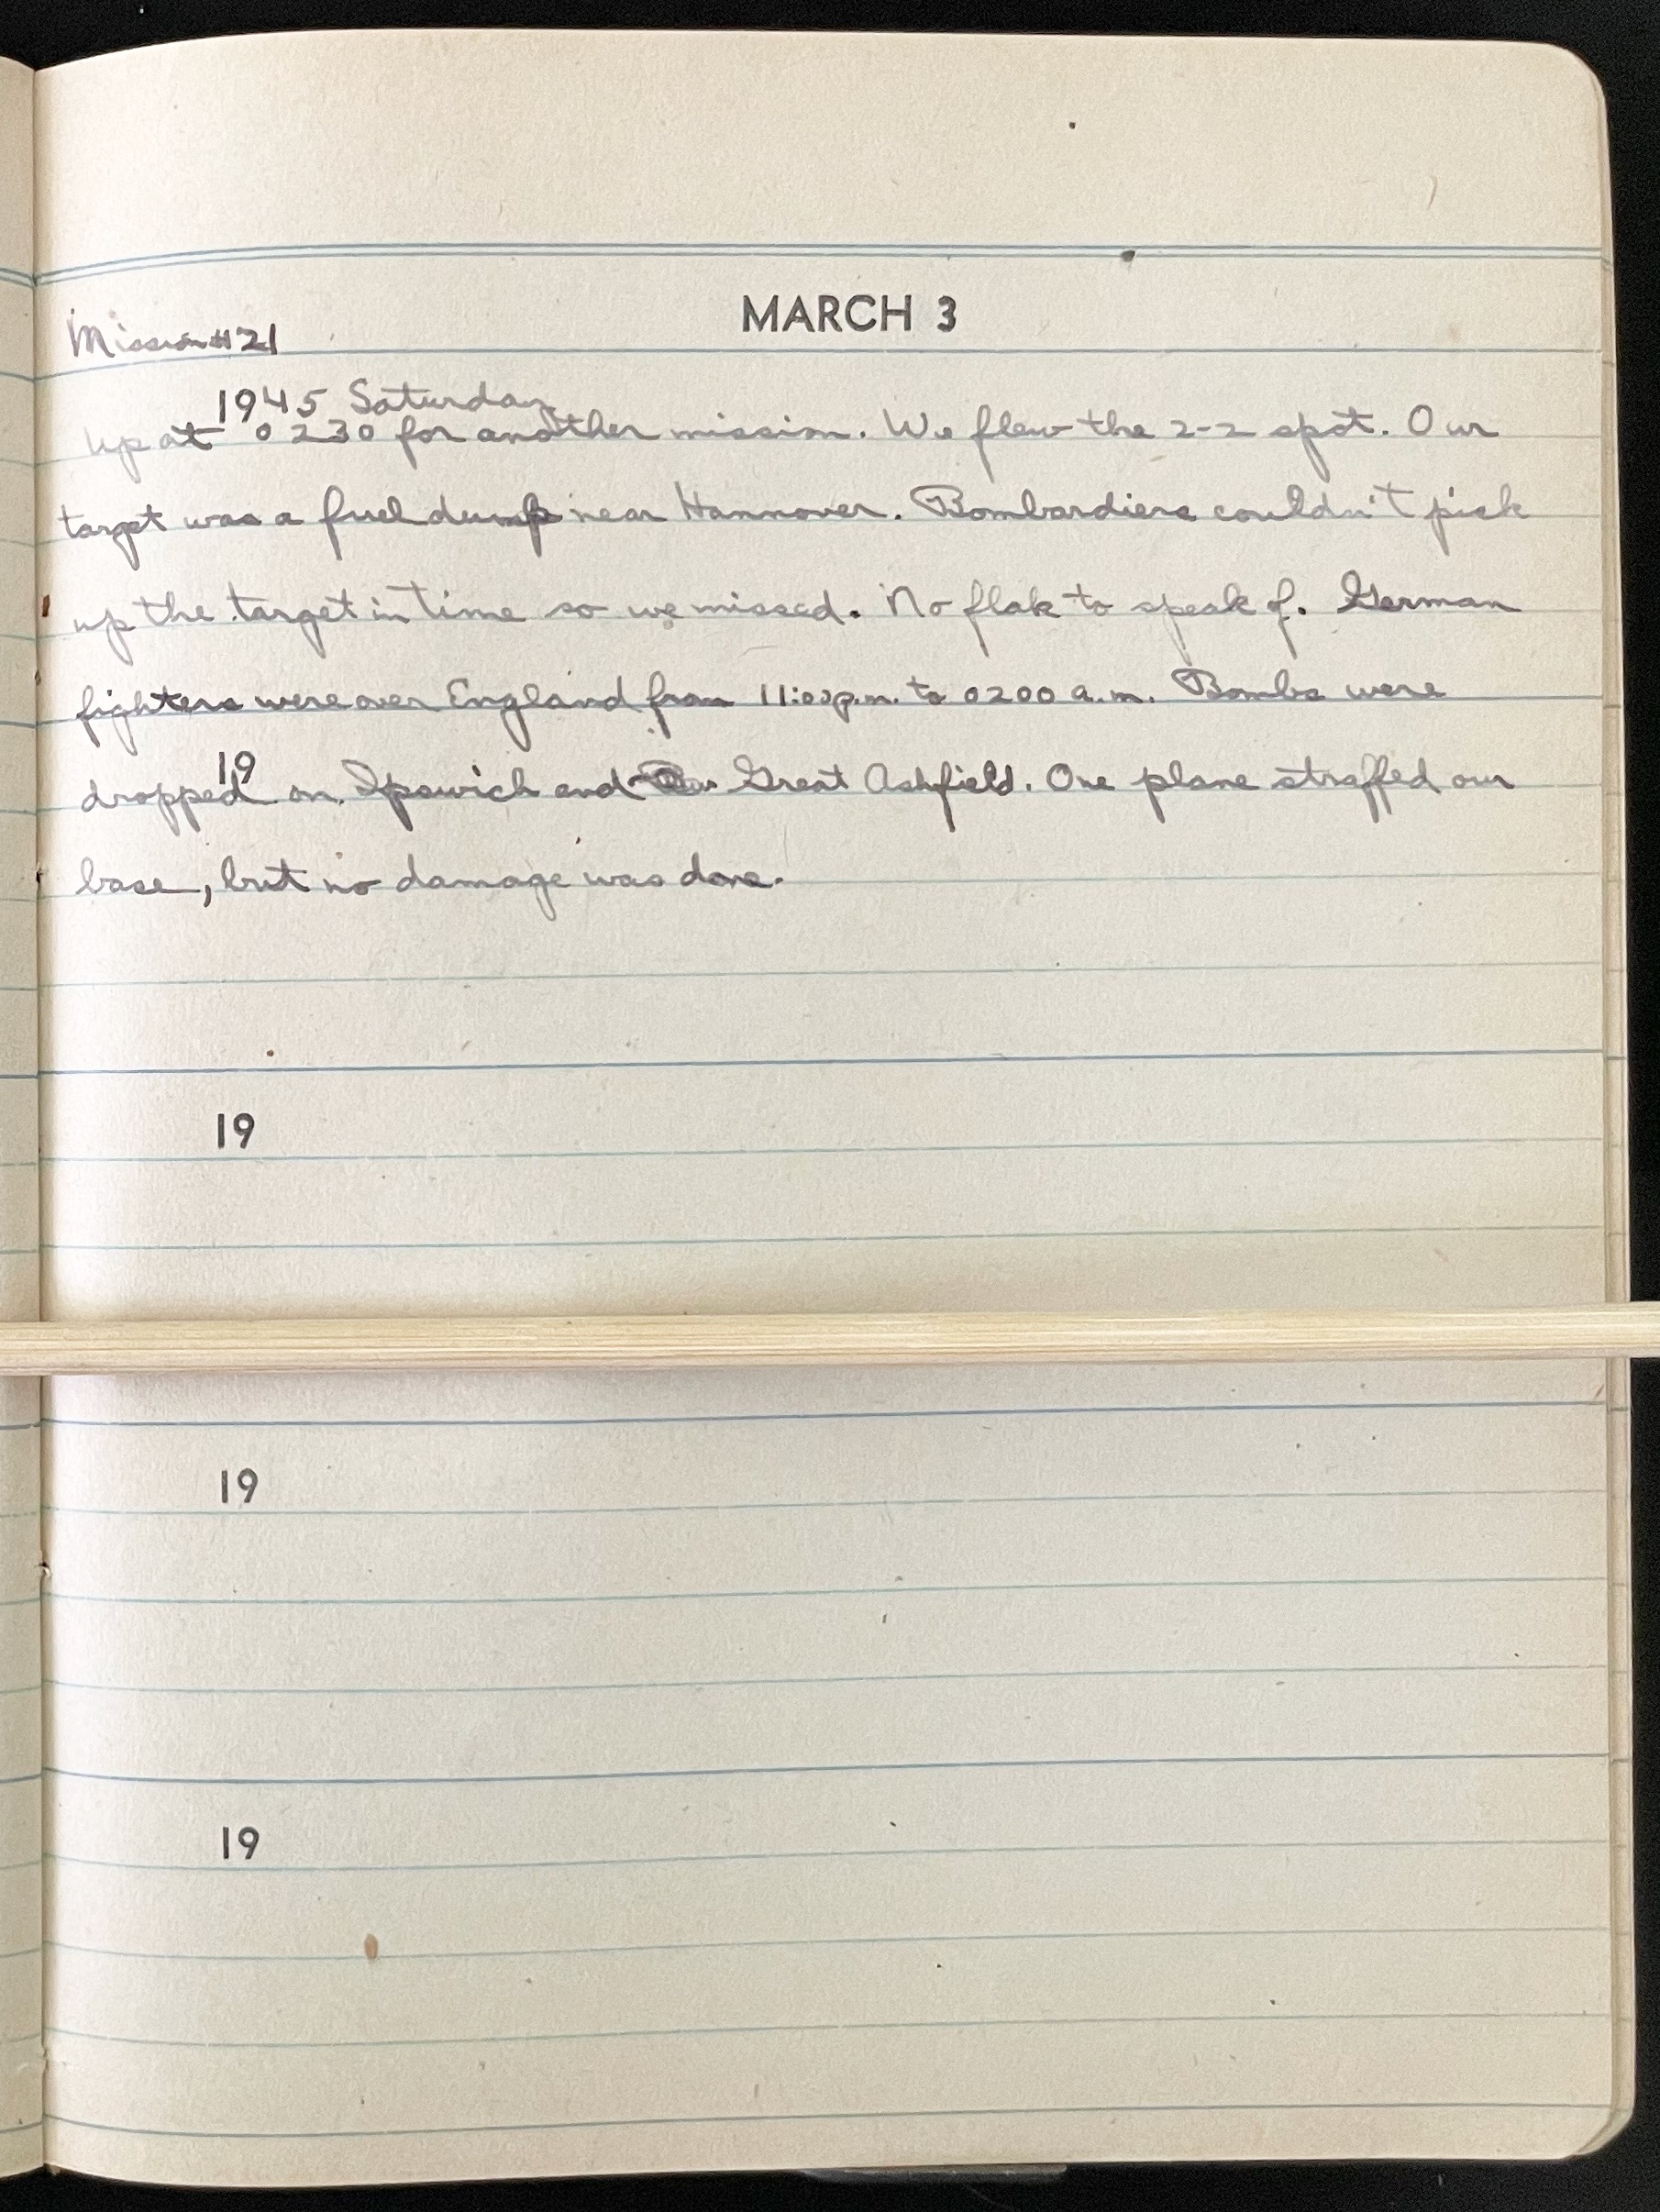 MARCH 3
Mission #21
1945 Saturday
up at 0230 for another mission. We flew the 2-2 spot. Our
target was a fuel dump near Hannover. Bombardiers couldn't pick
up the target in time so we missed. No flak to speak of. German
fighters were over England from 11:00p.m. to 0200 a.m. Bombs were
19
dropped on Ipswich and Great Ashfield. One plane straffed our
base, but no damage was done.
19
19
19